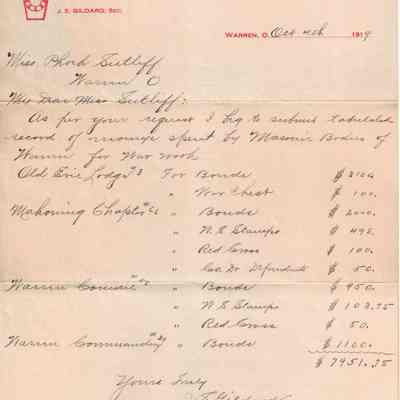 J. E. GILDARD, SEC.
WARREN, O. Oct 4th 1919
Miss Phoeb Sutliff
Warren O
My Dear Miss Sutliff:
As per your request I beg to submit tabulated
record of moneys spent by Masonic Bodies of
Warren for War Work
Old Erie Lodge #3 For Bonds $
" War Chest $ 100.
Mahoning Chapter #66 " Bonds $ 2000.
" W.S Stamps $ 495.
" Red Cross $ 100.
" Dependents $ 50.
Warren Council " Bonds $ 950.
" W.S Stamps $ 103.25
" Red Cross $ 50.
Warren Commandery #39 " Bonds $ 1100.
$ 7951.25
Yours Truly